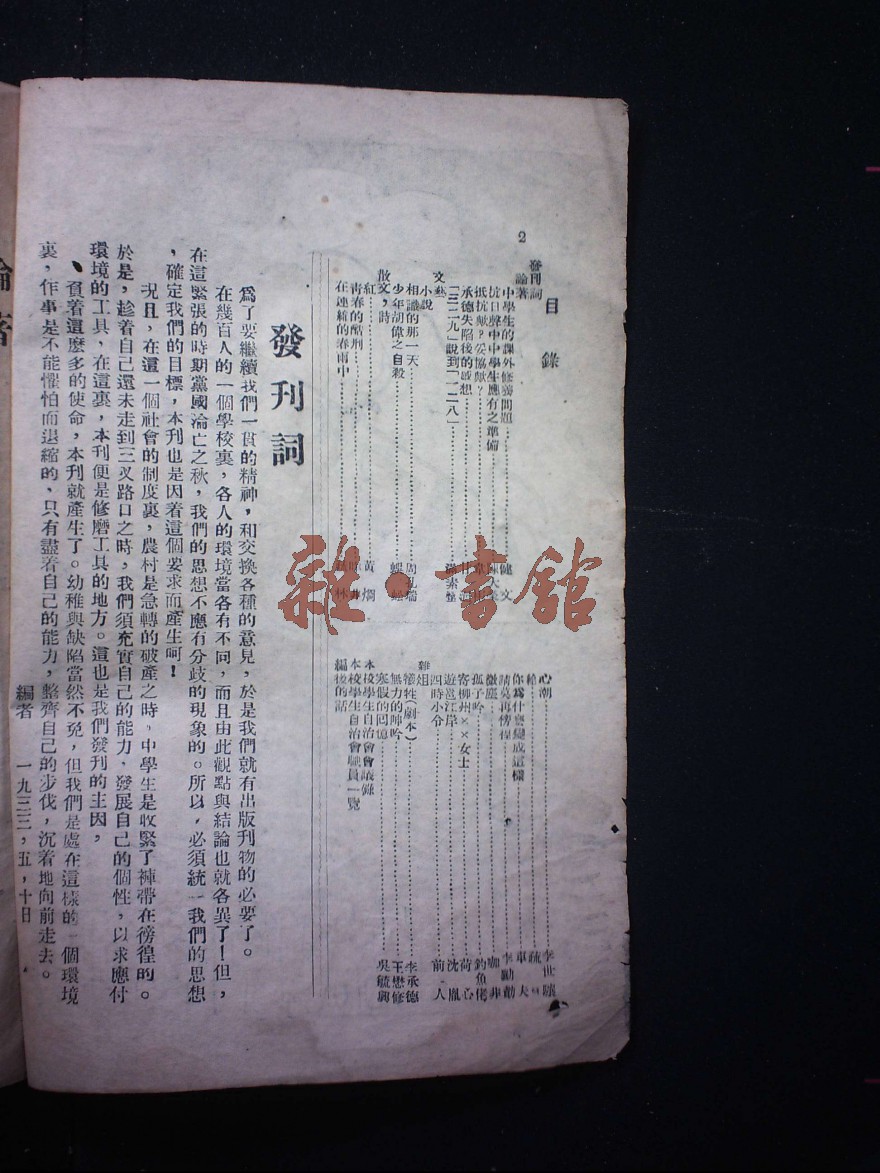 2
目錄
發刊詞
論著
中學生的課外修養問題
抗日聲中中學生應有之準備
抵抗歟?妥協歟?
承德失陷後的感想
「三二九」說到「一二八」
文藝
小說
相識的那一天
周兆瑞
少年胡偉之自殺
散文,詩
紅
黃
青春的酷刑
在連綿的春雨中
林
心潮
李世
給
你為什麼變成這樣
車夫
請莫再徬徨
李勵勤
微塵
咖啡
孤子吟
釣魚佬
客柳州××女士
荷心
遊邕江岸
沈胤
四時小令
前人
雜俎
犧牲(劇本)
李承德
無力的呻吟
王懋修
寒假的回憶
吳毓興
本校學生自治會會議錄
本校學生自治會職員一覽
編後的話
發刊詞
為了要繼續我們一貫的精神,和交換各種的意見,於是我們就有出版刊物的必要了。
在幾百人的一個學校裏,各人的環境當各有不同,而且由此觀點與結論也就各異了!但,
在這緊張的時期黨國淪亡之秋,我們的思想不應有分歧的現象的。所以,必須統一我們的思想
,確定我們的目標,本刊也是因着這個要求而產生呵!
況且,在這一個社會的制度裏,農村是急轉的破產之時,中學生是收緊了褲帶在徬徨的。
於是,趁着自己還未走到三叉路口之時,我們須充實自己的能力,發展自己的個性,以求應付
環境的工具,在這裏,本刊便是修磨工具的地方。這也是我們發刊的主因,
負着這麼多的使命,本刊就產生了。幼稚與缺陷當然不免,但我們是處在這樣的一個環境
裏,作事是不能懼怕而退縮的,只有盡着自己的能力,整齊自己的步伐,沉着地向前走去。
編者 一九三三,五,十日
論著
雜·書館